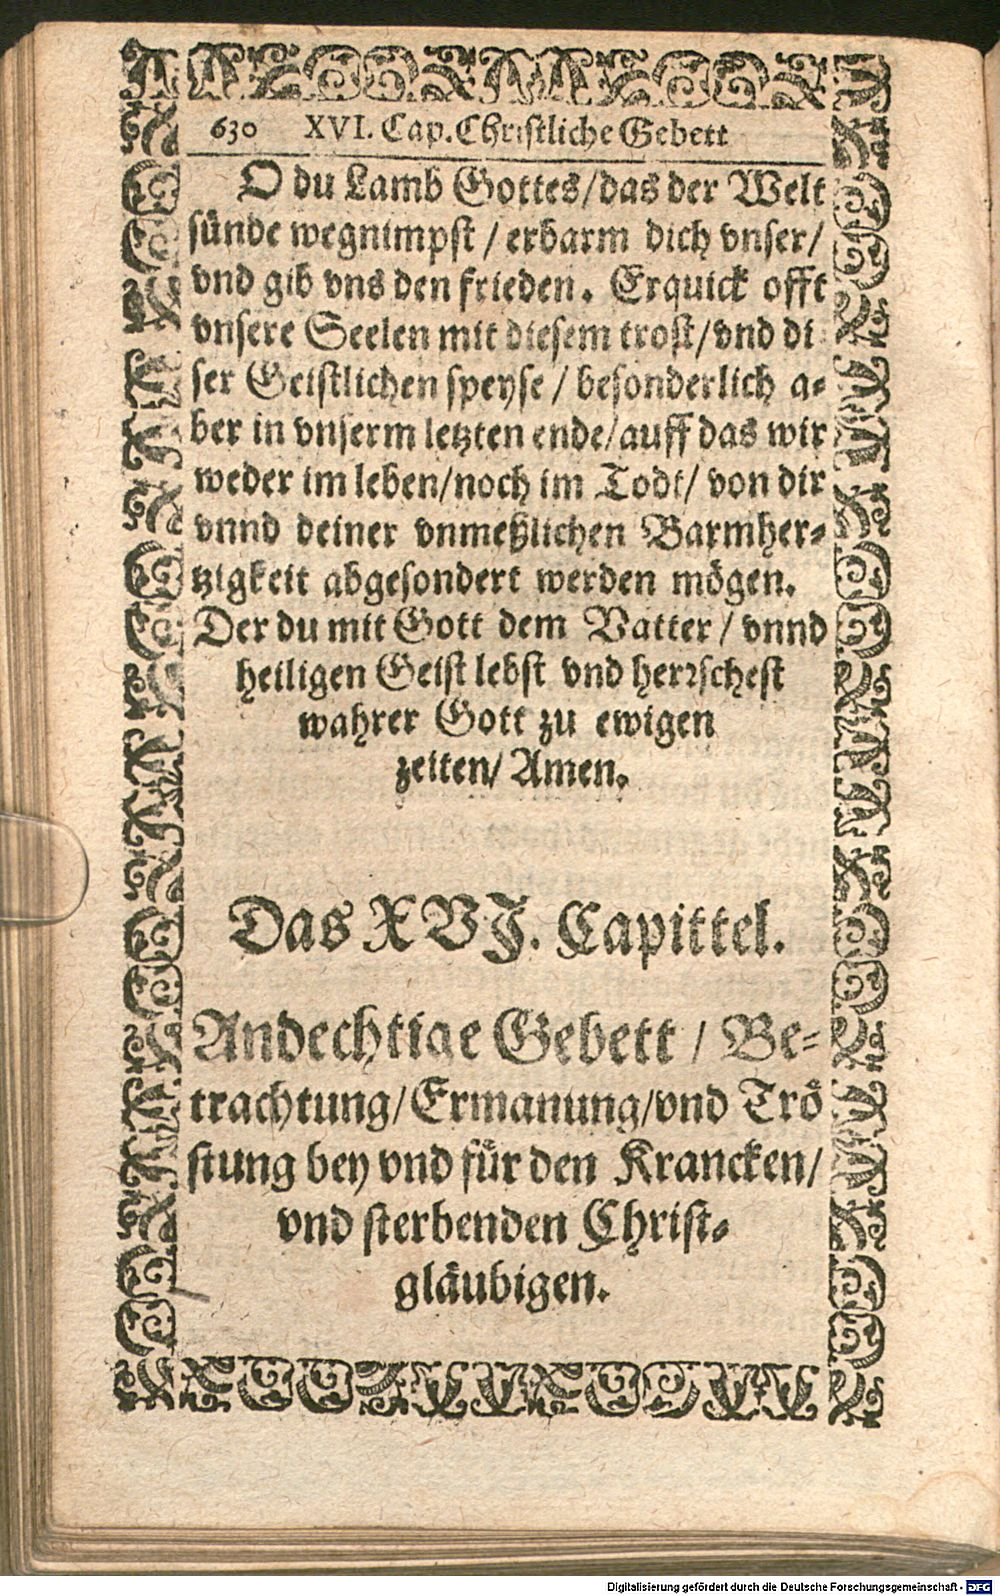 630 XVI. Cap. Christliche Gebett
O du Lamb Gottes/das der Welt
sünde wegnimpst / erbarm dich vnser/
vnd gib vns den frieden. Erquick offt
vnsere Seelen mit diesem trost/vnd di
ser Geistlichen speyse / besonderlich a-
ber in vnserm letzten ende/auff das wir
weder im leben/noch im Todt/ von dir
vnnd deiner vnmeßlichen Barmher-
tzigkeit abgesondert werden mögen.
Der du mit Gott dem Vatter / vnnd
heiligen Geist lebst vnd herrschest
wahrer Gott zu ewigen
zeiten/ Amen.
Das XVJ. Capittel.
Andechtige Gebett / Be-
trachtung/Ermanung/vnd Trö
stung bey vnd für den Krancken/
vnd sterbenden Christ-
gläubigen.
Digitalisierung gefördert durch die Deutsche Forschungsgemeinschaft - DFG